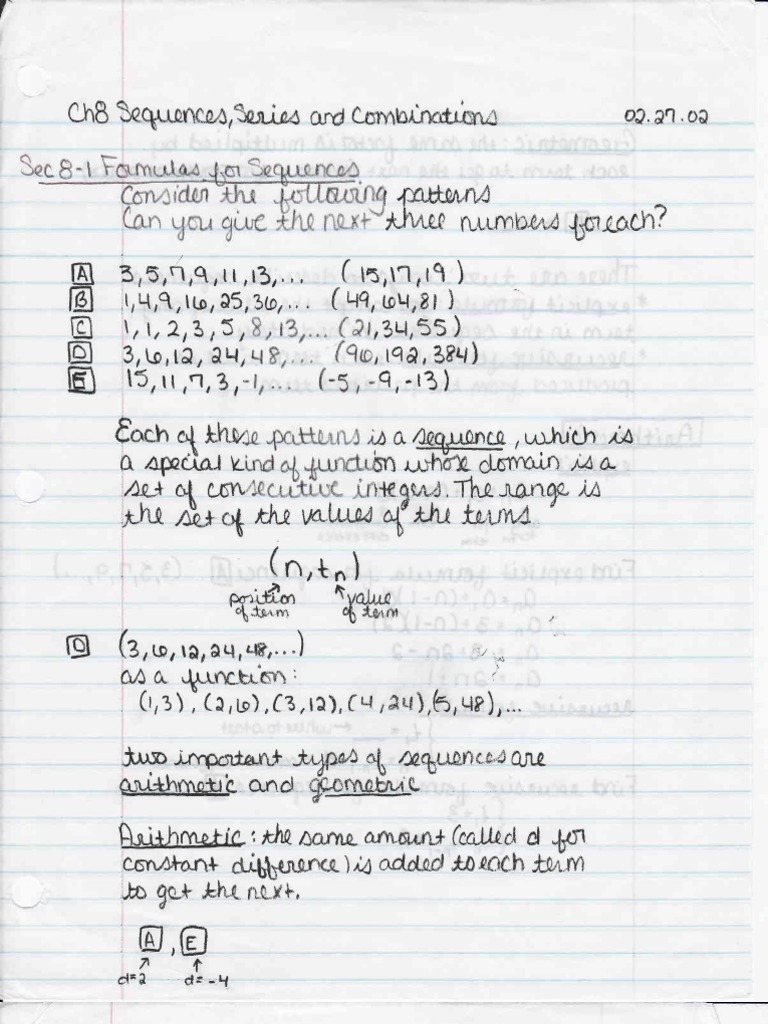 Ch8 Sequences, Series and Combinations 02.27.02
Sec 8-1 Formulas for Sequences
Consider the following patterns
Can you give the next three numbers for each?
A 3,5,7,9,11,13,... (15,17,19)
B 1,4,9,16,25,36,... (49,64,81)
C 1,1,2,3,5,8,13,... (21,34,55)
D 3,6,12,24,48,... (96,192,384)
E 15,11,7,3,-1,... (-5,-9,-13)
Each of these patterns is a sequence, which is
a special kind of function whose domain is a
set of consecutive integers. The range is
the set of the values of the terms
(n, tₙ)
position value
of term of term
D (3,6,12,24,48,...)
as a function:
(1,3), (2,6), (3,12), (4,24), (5,48),...
two important types of sequences are
arithmetic and geometric
Arithmetic: the same amount (called d for
constant difference) is added to each term
to get the next.
A, E
d=2 d=-4